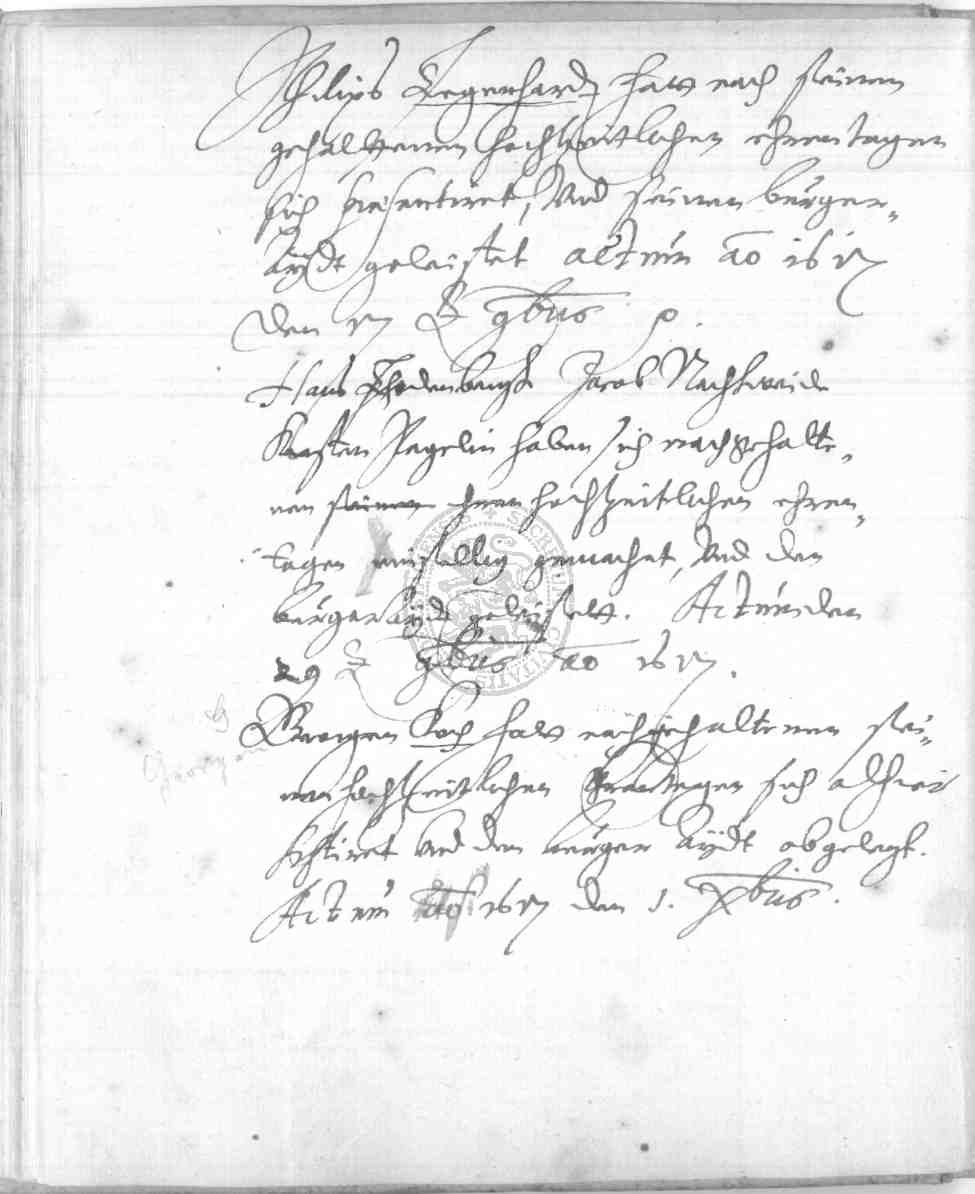 Philips Degenhard hatt nach seinen
gehalttenen hochtzeitlichen ehrentagen
sich præsentiret, Vnd seinen bürger-
Aÿdt geleistet actum ao 1617
den 17 9bris p.
Hans Jacob
Karsten Pagelin haben sich nach gehalte-
nen seinen ihren hochtzeitlichen ehren-
tagen gemachet, Vnd den
bürger aÿdt geleistett. Actum den
29 9bris ao 1617.
Georgen Koch hatt nach gehaltenen sei-
nen hochtzeitlichen sich alhier
sistiret Vnd den bürger Aÿdt abgelegt.
Actum ao 1617 den 1. Xbris.
Georgen